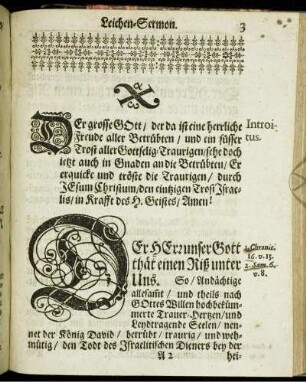 Leichen-Sermon. 3
DEr grosse GOtt/ der da ist eine herrliche
Freude aller Betrübten/ und ein süsser
Trost aller Gottselig-Traurigen/ sehe doch
jetzt auch in Gnaden an die Betrübten/ Er
erquicke und tröste die Traurigen/ durch
JEsum Christum/ den eintzigen Trost Israe-
lis/ in Krafft des H. Geistes/ Amen!
Introi-
tus.
DEr HErr unser Gott
thät einen Riß unter
Uns. So/ Andächtige
allesamt/ und theils nach
GOttes Willen hochbeküm-
merte Trauer-Hertzen/ und
Leydtragende Seelen/ nen-
net der König David/ betrübt/ traurig/ und weh-
mütig/ den Todt des Israelitischen Dieners bey der
1. Chronic.
16. v. 13.
2. Sam. 6.
v. 8.
A 2 hei-